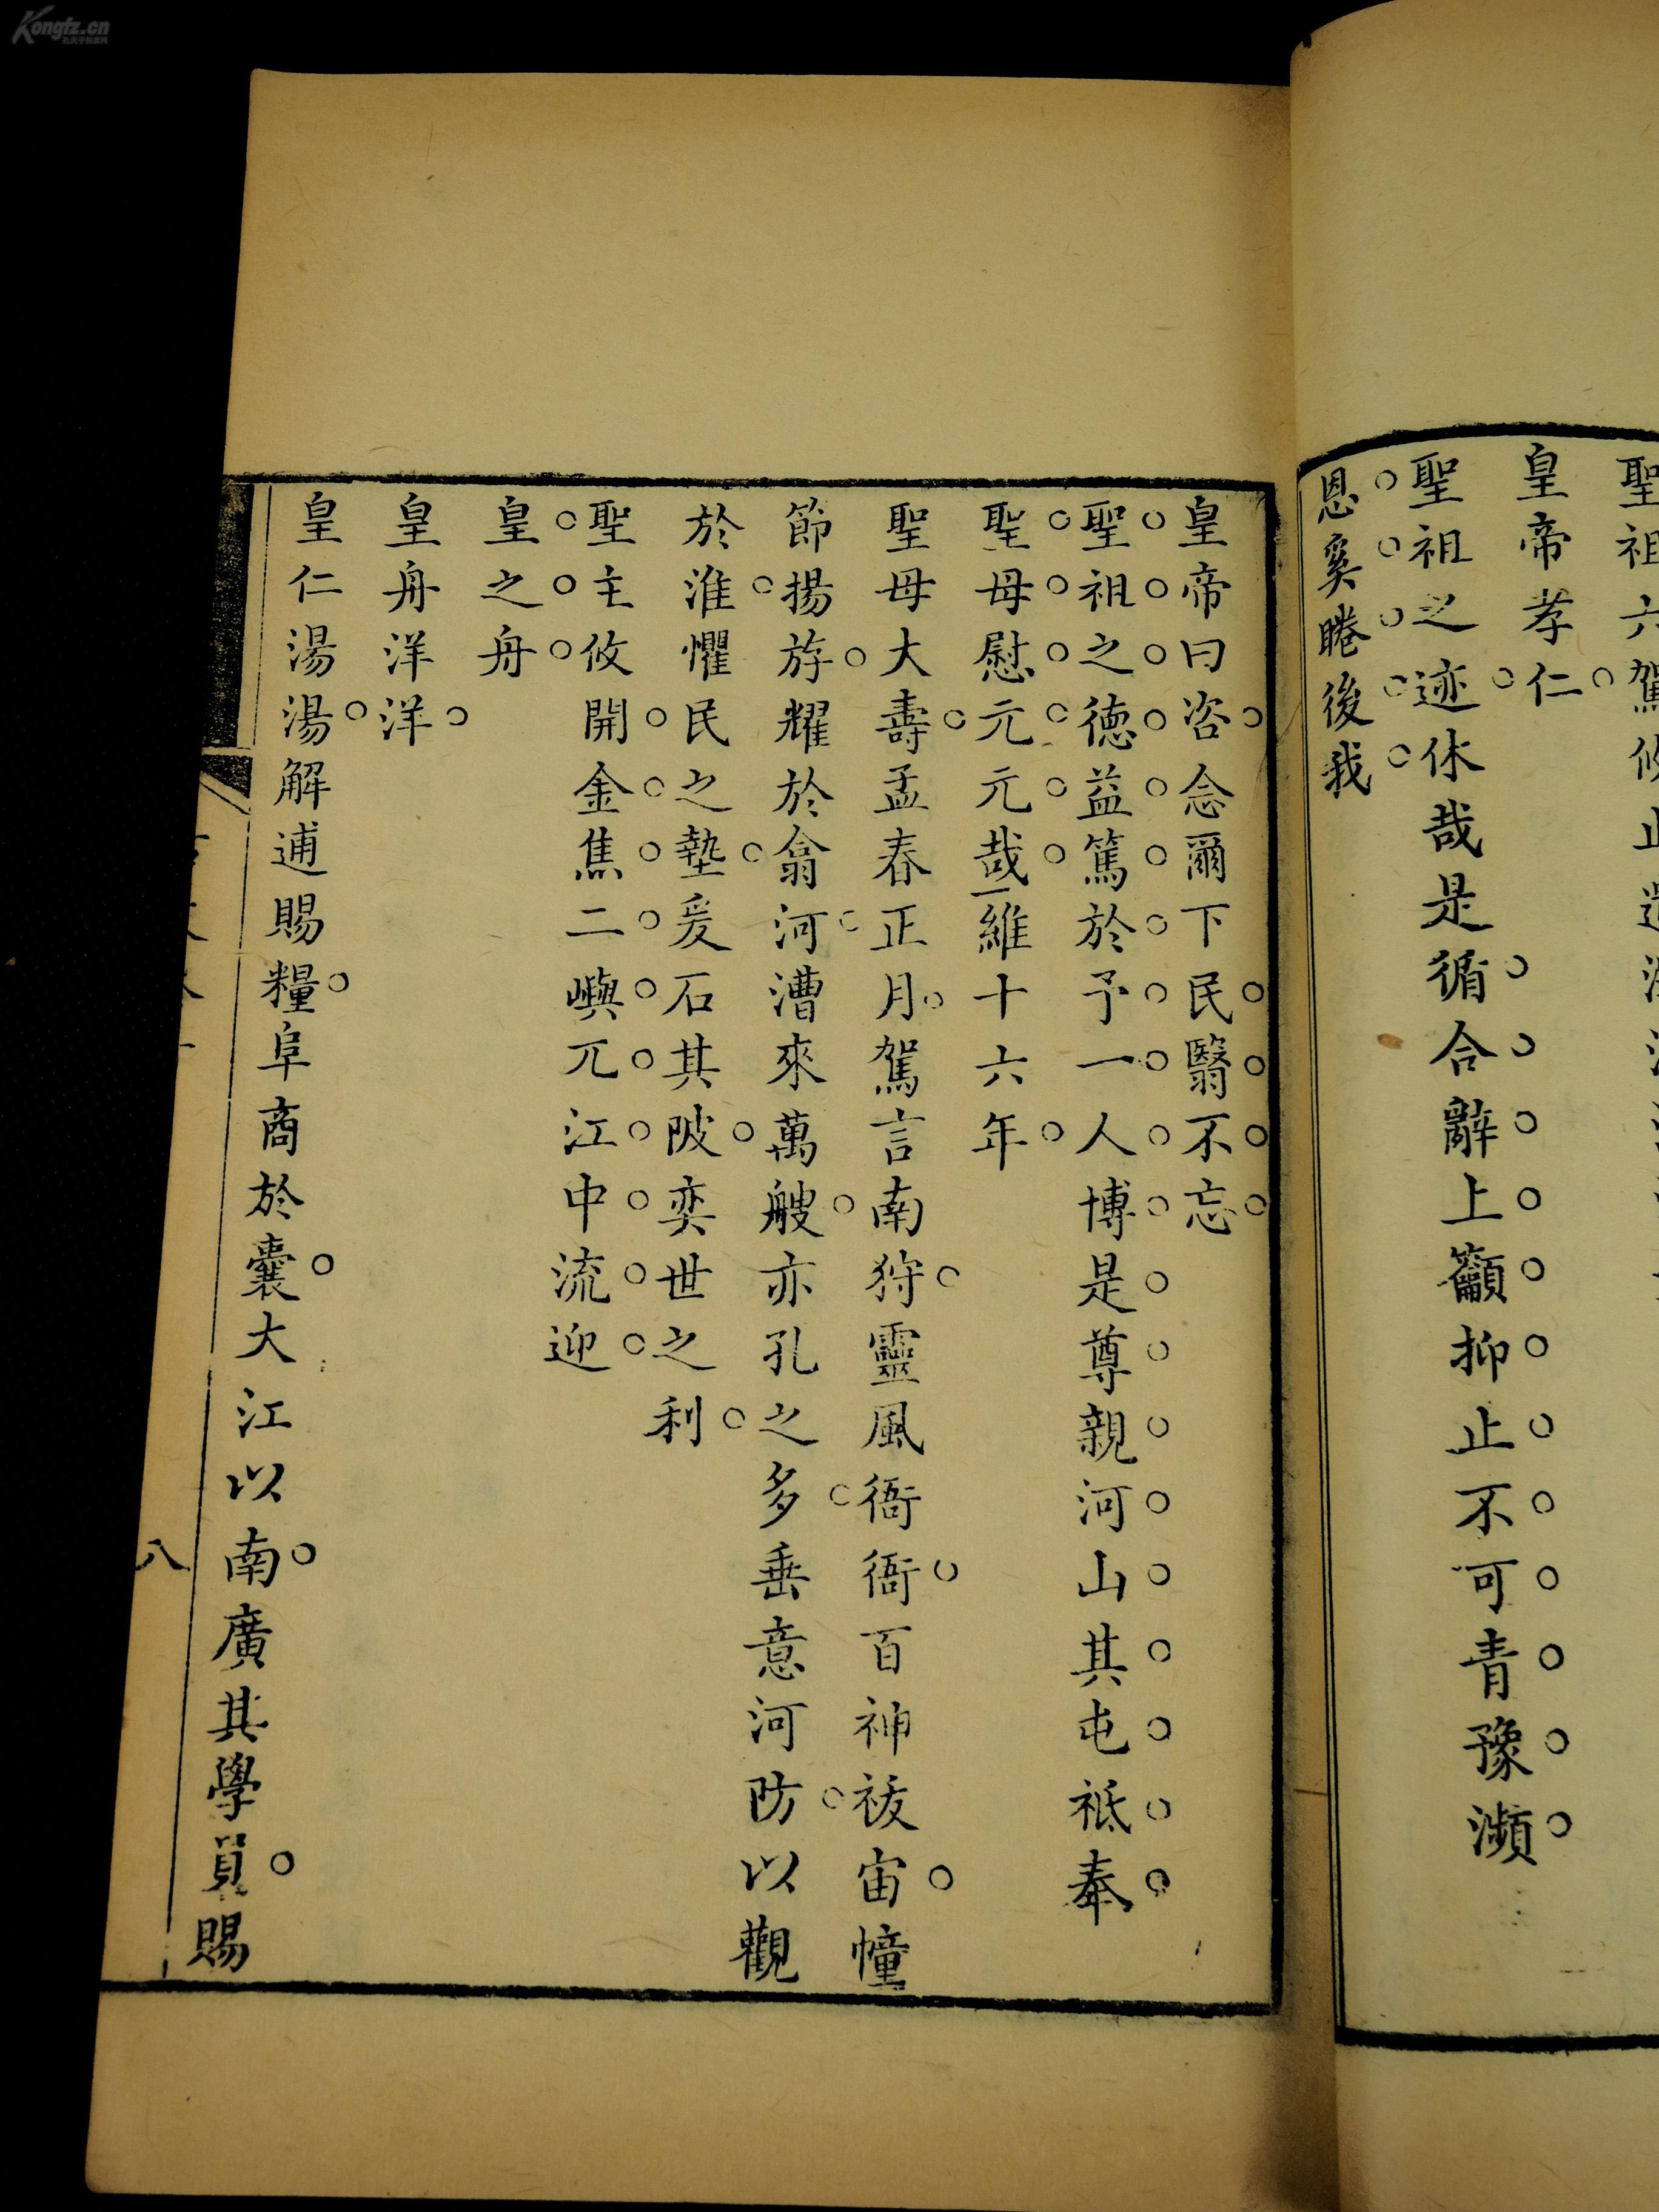 Kongfz.cn
聖祖六駕
皇帝孝仁
聖祖之迹休哉是循合辭上籲抑止不可青豫瀕
恩奚睠後我
皇帝曰咨念爾下民翳不忘
聖祖之德益篤於予一人博是尊親河山其屯祗奉
聖母慰元元哉維十六年
聖母大壽孟春正月駕言南狩靈風衙衙百神祓宙幢
節揚斿耀於翕河漕來萬艘亦孔之多垂意河防以觀
於淮懼民之墊爰石其陂奕世之利
聖主攸開金焦二嶼兀江中流迎
皇之舟
皇舟洋洋
皇仁湯湯解逋賜糧阜商於囊大江以南廣其學員賜
八